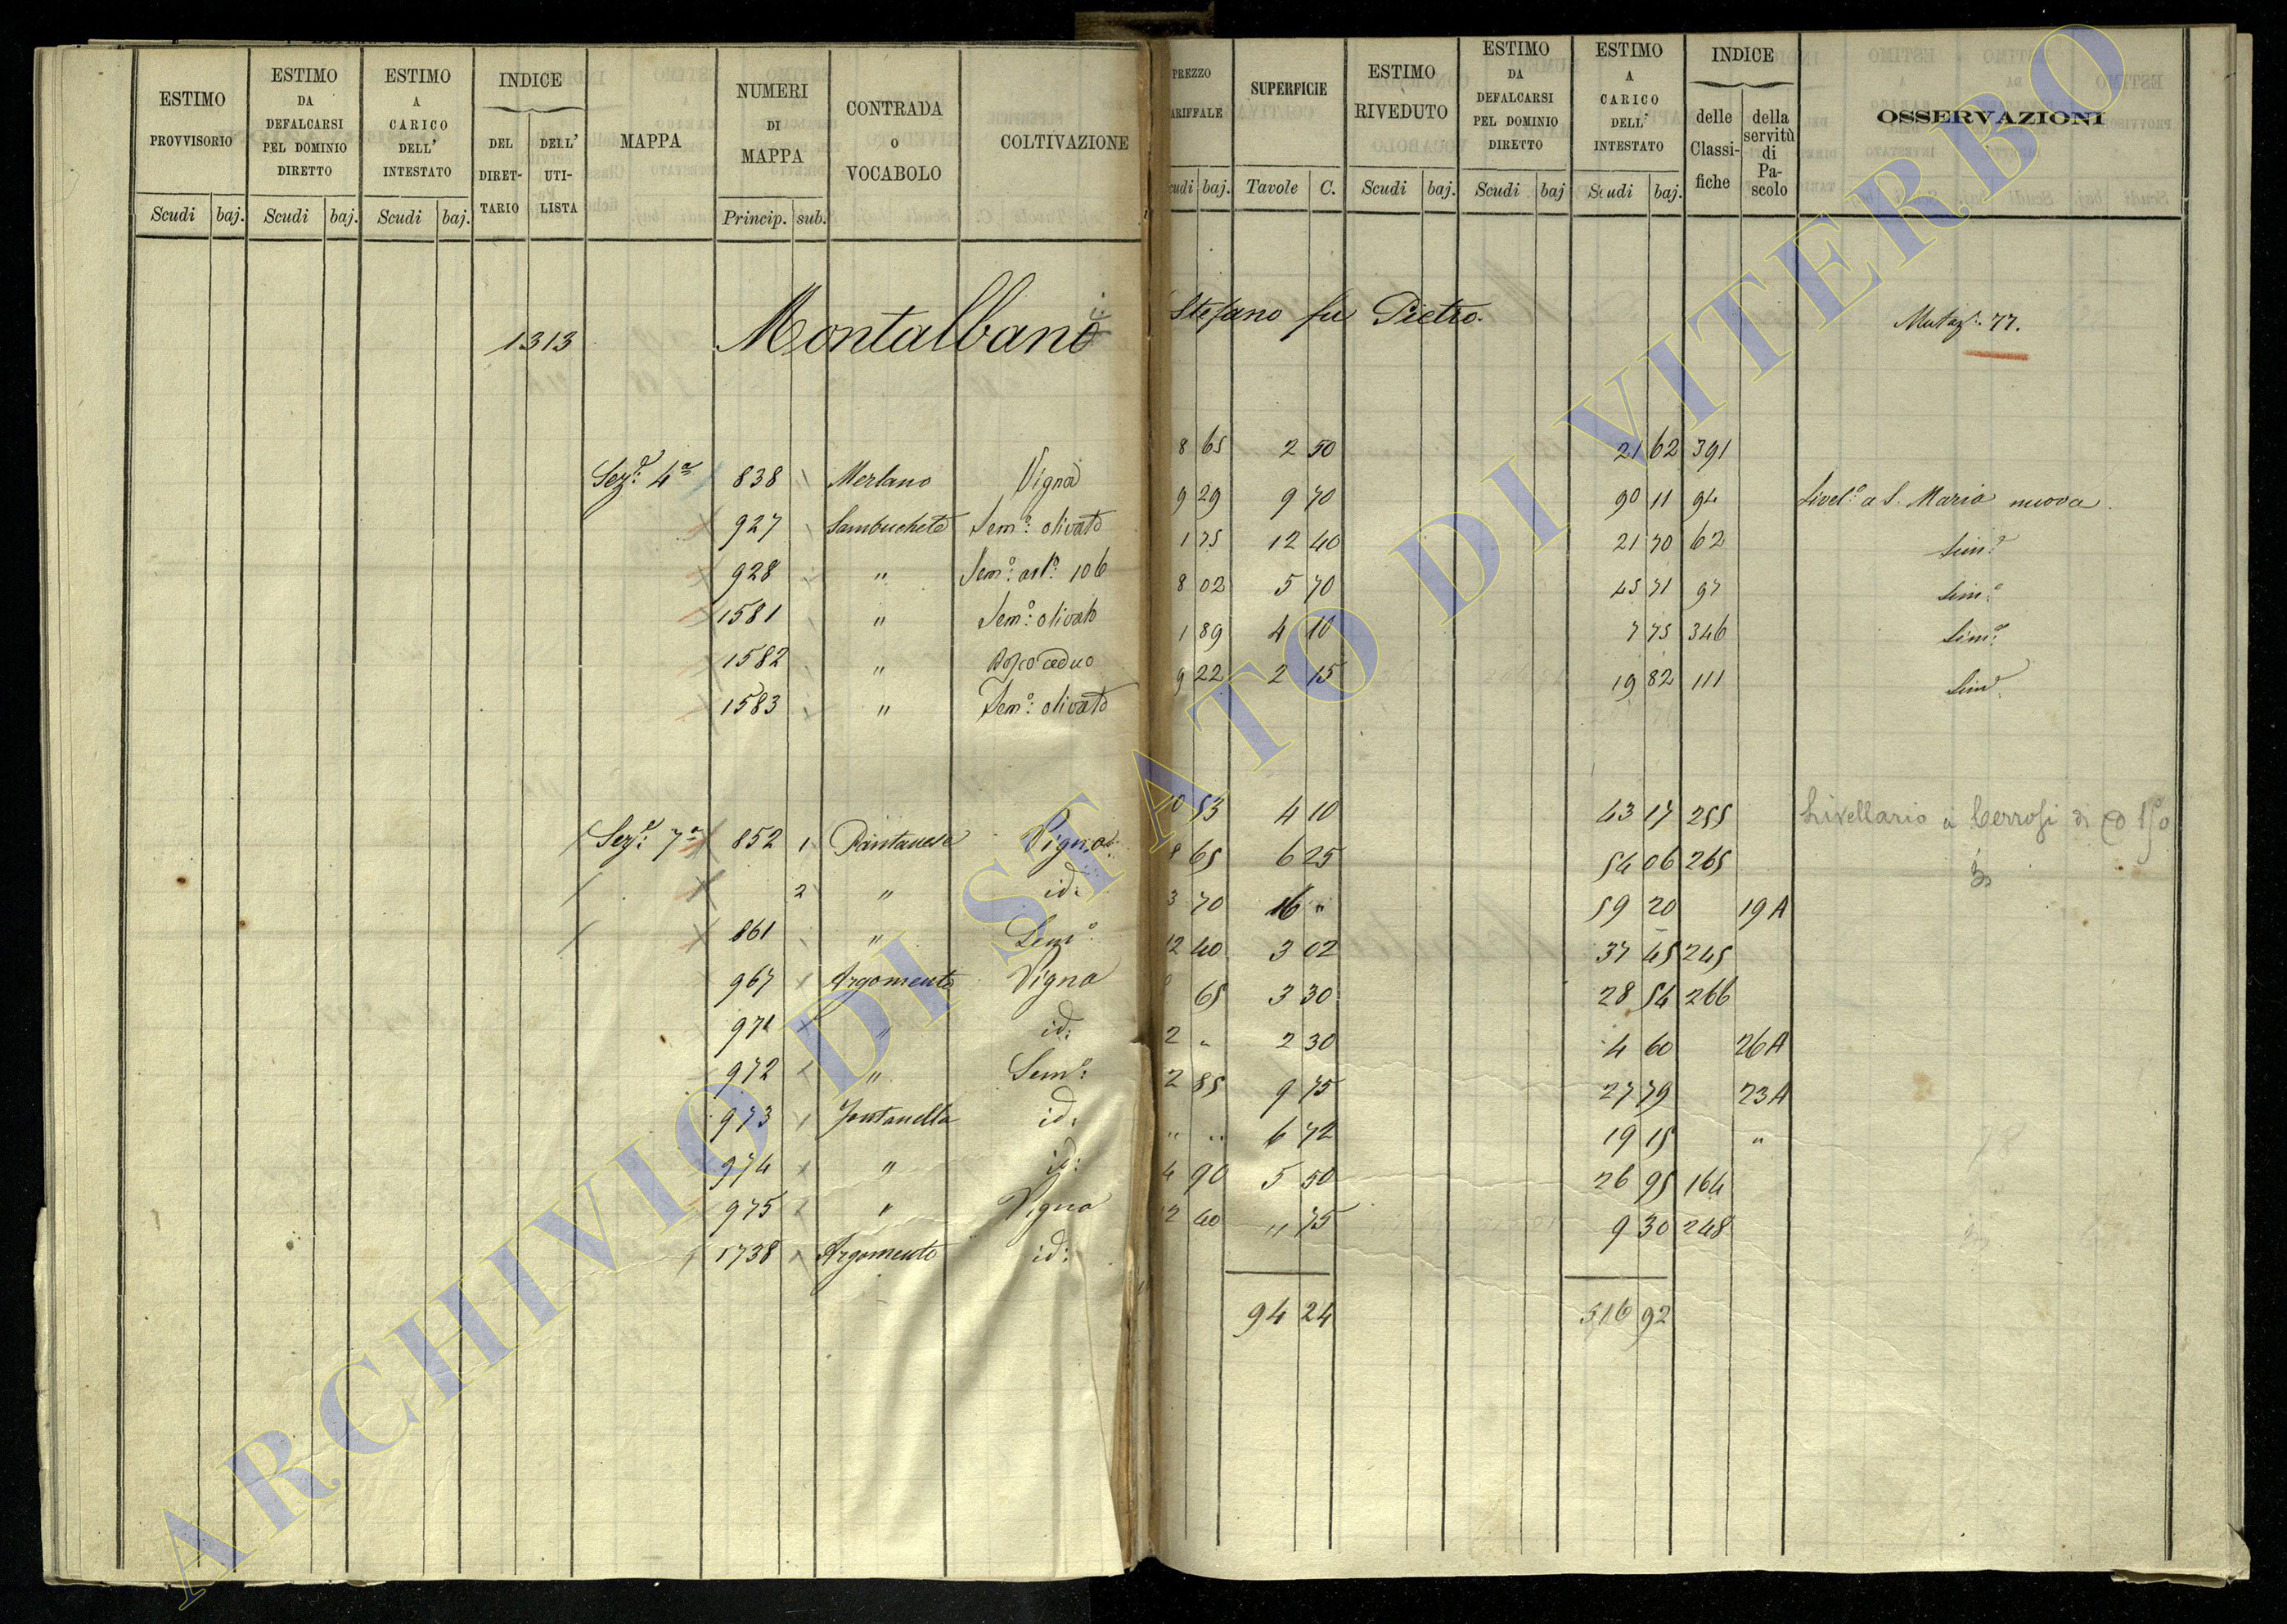 ESTIMO PROVVISORIO Scudi baj.
ESTIMO DA DEFALCARSI PEL DOMINIO DIRETTO Scudi baj.
ESTIMO A CARICO DELL' INTESTATO Scudi baj.
INDICE DEL DIRETTARIO DELL' UTILISTA
MAPPA
NUMERI DI MAPPA Princip. sub.
CONTRADA O VOCABOLO
COLTIVAZIONE
PREZZO ARIFFALE cudi baj.
SUPERFICIE Tavole C.
ESTIMO RIVEDUTO Scudi baj.
ESTIMO DA DEFALCARSI PEL DOMINIO DIRETTO Scudi baj
ESTIMO A CARICO DELL' INTESTATO Scudi baj.
INDICE delle Classifiche della servitù di Pascolo
OSSERVAZIONI
1313 Montalbano Stefano fu Pietro. Mutaz: 77.
Sez: 4a 838 Merlano Vigna 8 65 2 50 21 62 391
927 Sambuchete Sem: olivato 9 29 9 70 90 11 94 Livel: a S. Maria nuova
928 " Sem: 106 1 75 12 40 21 70 62 Sim:
1581 " Sem: olivato 8 02 5 70 45 71 97 Sim:
1582 " Bosco ceduo 1 89 4 10 7 75 346 Sim:
1583 " Sem: olivato 9 22 2 15 19 82 111 Sim:
Sez: 7a 852 1 Pantanese Vigna 10 53 4 10 43 17 255 Livellario a Cerrosi di
2 " id: 8 65 6 25 54 06 265
861 " Sem: 3 70 16 " 59 20 19A
967 Argomento Vigna 12 40 3 02 37 45 245
971 " id: 65 3 30 28 54 266
972 " Sem: 2 " 2 30 4 60 26A
973 Fontanella id: 2 85 9 75 27 79 23A
974 " id: " " 6 72 19 15 "
975 " Vigna 4 90 5 50 26 95 164
1738 Argomento id: 2 40 " 75 9 30 248
94 24 516 92
ARCHIVIO DI STATO DI VITERBO